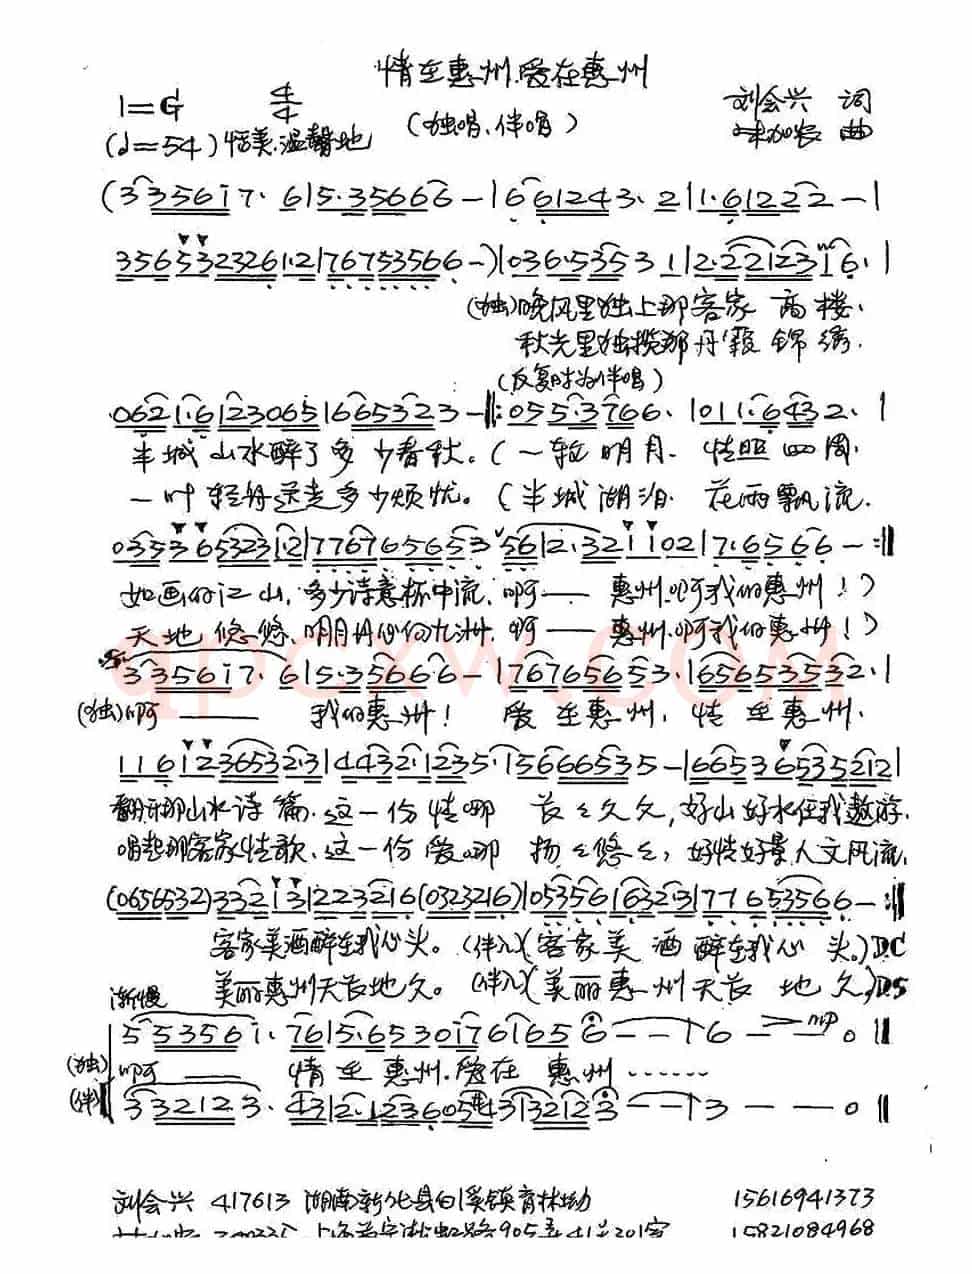 情在惠州.爱在惠州
1=G 4/4
(独唱、伴唱)
刘会兴 词
曲
(♩=54) 恬美.温馨地
(3 3 5 6 i 7· 6|5·3 5 6 6 6 -|6 6 1 2 4 3· 2|1·6 1 2 2 2 -|
3 5 6 5 3 2 3 2 6 1·2|7 6 7 5 3 5 6 6 -)|0 3 6·5 3 5 3 1|2·2 2 1 2 3 1 6·|
(独)晚风里独上那客家 高楼、
秋光里独揽那丹霞 锦绣.
(反复时为伴唱)
0 6 2 1·6 1 2 3 0 6 5|6 6 5 3 2 3 -‖:0 5 5·3 7 6 6·|0 1 1·6 4 3 2·|
半城 山水醉了多 少春秋。(一轮 明月. 情照 四周.
一叶 轻舟送走多少烦忧。(半城 湖泊. 花雨飘流.
0 3 5 3 6 5 3 2 3 1·2|7 7 6 7 6 5 6 5 3 5 6|2·3 2 i i 0 2|7·6 5 6 6 -:‖
如画的江山.多少诗意杯中流.啊—— 惠州.啊我的惠州!)
天地悠悠、明月丹心向九洲.啊—— 惠州.啊我的惠州!)
3 3 5 6 i 7· 6|5·3 5 6 6·6 -|7 6 7 6 5 6 5 3·|6 5 6 5 3 5 3 2·|
(独)啊—— 我的惠州! 爱 在惠州. 情 在惠州.
1 1 6 1 2 3 6 5 3 2·3|4 4 3 2·1 2 3 5·|5 6 6 6 5 3 5 -|6 6 5 3 6 5 3 5 2 1 2|
翻开那山水诗篇.这一份情哪 长々久久,好山好水任我遨游.
唱起那客家情歌.这一份爱哪 扬々悠々,好情好景人文风流.
(0 6 5 6 5 3 2)3 3 2 1 3|2 2 3 2·1 6(0 3 2 3 2 1 6)|0 5 3 5 6 1 6 3 2·3|7 7 6 5 3 5 6 6 -:‖
客家美酒醉在我心头。(伴入)(客家美 酒醉在我心 头。)DC
美丽惠州天长地久。(伴入)(美丽惠州天长 地久。)DS
渐慢
5 5 3 5 6 i· 7 6|5·6 5 3 0 i 7 6|6 5 6 - -|6 - - 0‖
mp
(独) 啊—— 情在 惠州.爱在 惠州……
(伴) 3 3 2 1 2 3· 4 3|2·1 2 3 6 0 5 #4 3|3 2 1 2 3 - -|3 - - 0‖
刘会兴 417613 湖南新化县白溪镇育林坳 15616941373
上海 905弄41号201室 15821084968
qpckw.com